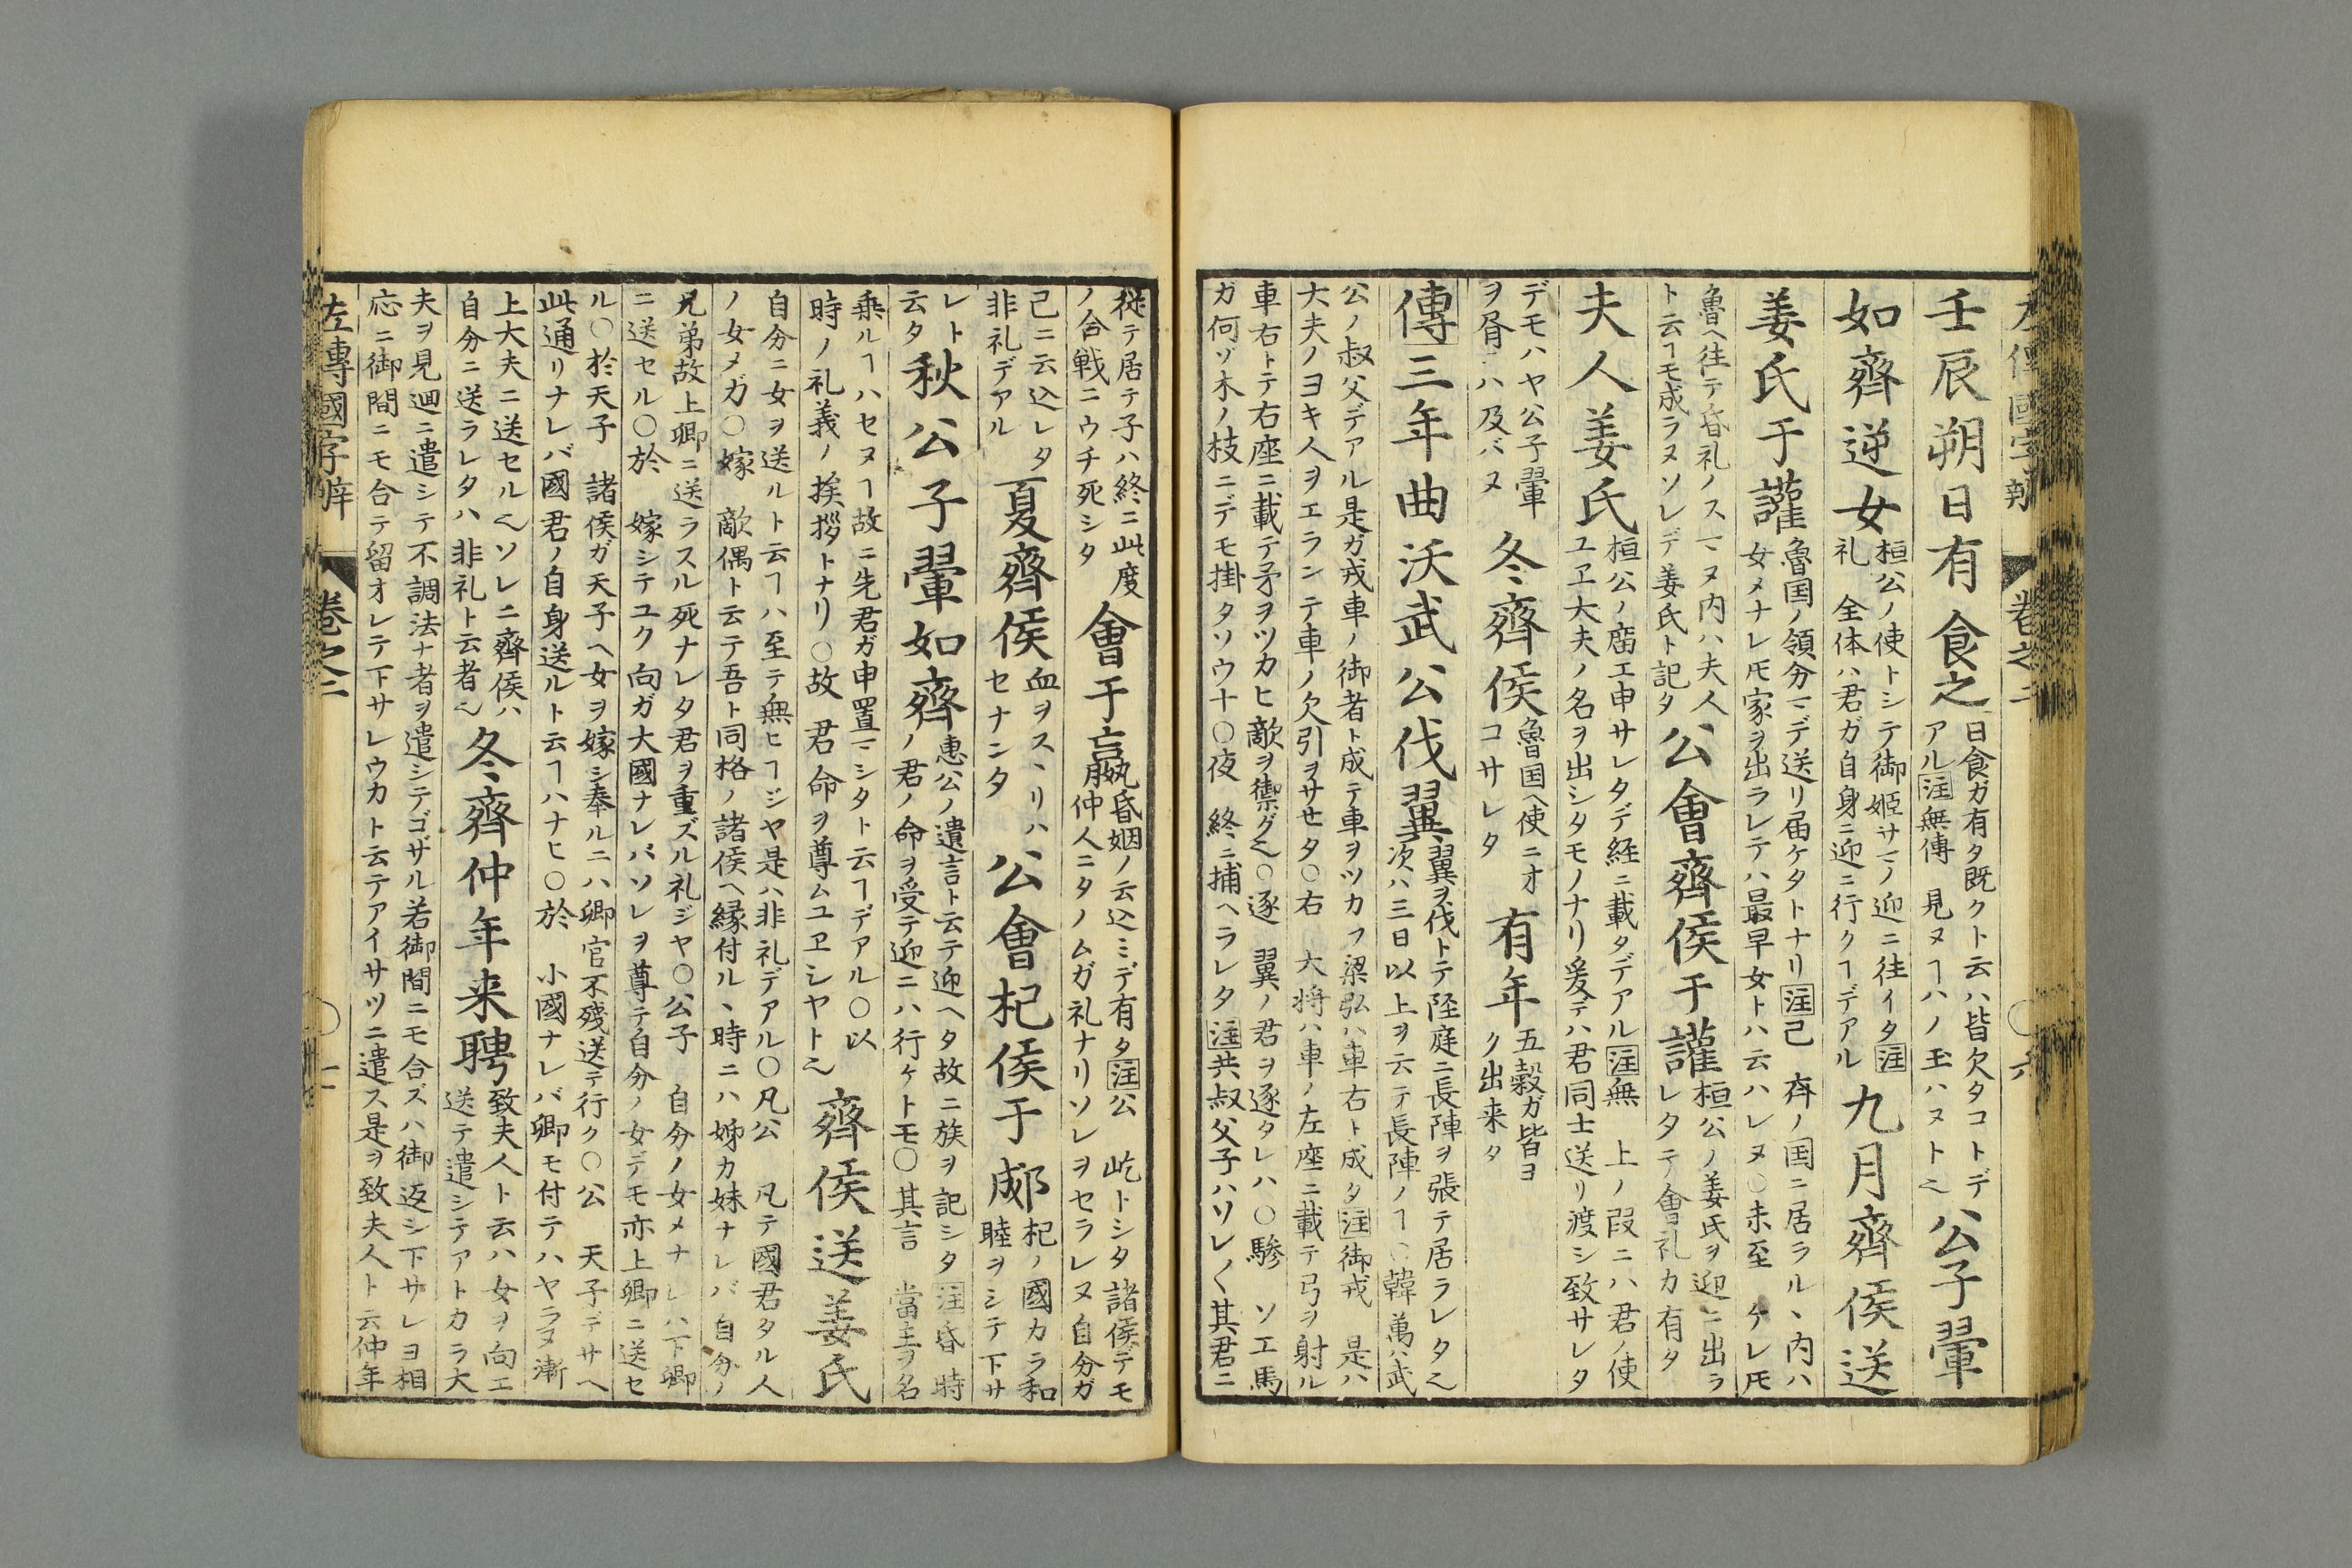 壬辰朔日有食之日食ガ有タ既クト云ハ皆欠タコトデ
アル注無傳 見ヌヿハノ玉ハヌトヘ公子翬
如齊逆女桓公ノ使トシテ御姫サマノ迎ニ往イタ注
礼 全体ハ君ガ自身ニ迎ニ行クヿデアル九月齊侯送
姜氏于讙魯国ノ領分マデ送リ届ケタトナリ注己 斉ノ国ニ居ラルヽ内ハ
女メナレ𪜈家ヲ出ラレテハ最早女トハ云ハレヌ○未至 ケレ𪜈
魯ヘ往テ昏礼ノスマヌ内ハ夫人
ト云ヿモ成ラヌソレデ姜氏ト記タ公會齊侯于讙桓公ノ姜氏ヲ迎ニ出ラ
レタテ會礼カ有タ
夫人姜氏桓公ノ廟エ申サレタデ経ニ載タデアル注無 上ノ段ニハ君ノ使
ユヱ大夫ノ名ヲ出シタモノナリ爰デハ君同士送リ渡シ致サレタ
デモハヤ公子翬
ヲ屑ニハ及バヌ冬齊侯魯国ヘ使ニオ
コサレタ有年五穀ガ皆ヨ
ク出来タ
傳三年曲沃武公伐翼翼ヲ伐トテ陘庭ニ長陣ヲ張テ居ラレタヘ
次ハ三日以上ヲ云テ長陣ノヿ○韓萬ハ武
公ノ叔父デアル是ガ戎車ノ御者ト成テ車ヲツカフ梁弘ハ車右ト成タ注御戎 是ハ
大夫ノヨキ人ヲエランテ車ノ欠引ヲサセタ○右 大将ハ車ノ左座ニ載テ弓ヲ射ル
車右トテ右座ニ載テ矛ヲツカヒ敵ヲ禦グヘ○逐 翼ノ君ヲ逐タレハ○驂 ソエ馬
ガ何ゾ木ノ枝ニデモ掛タソウナ○夜 終ニ捕ヘラレタ注共叔父子ハソレ〱其君ニ
従テ居テ子ハ終ニ此度
ノ合戦ニウチ死シタ會于嬴昏姻ノ云込ミデ有タ注公 屹トシタ諸侯デモ
仲人ニタノムガ礼ナリソレヲセラレヌ自分ガ
己ニ云込レタ
非礼デアル夏齊侯血ヲスヽリハ
セナンタ公會杞侯于郕杞ノ國カラ和
睦ヲシテ下サ
レト
云タ秋公子翬如齊惠公ノ遺言ト云テ迎ヘタ故ニ族ヲ記シタ注昏 時
ノ君ノ命ヲ受テ迎ニハ行ケトモ○其言 當主ヲ名
乗ルヿハセヌヿ故ニ先君ガ申置マシタト云ヿデアル○以
時ノ礼義ノ挨拶トナリ○故 君命ヲ尊ムユヱシヤトヘ齊侯送姜氏
自分ニ女ヲ送ルト云ヿハ至テ無ヒヿジヤ是ハ非礼デアル○凡公 凡テ國君タル人
ノ女メガ○嫁 敵偶ト云テ吾ト同格ノ諸侯ヘ縁付ルヽ時ニハ姊カ妹ナレバ自分ノ
兄弟故上卿ニ送ラスル死ナレタ君ヲ重ズル礼ジヤ○公子 自分ノ女メナレハ下卿
ニ送セル○於 嫁シテユク向ガ大國ナレバソレヲ尊テ自分ノ女デモ亦上卿ニ送セ
ル○於天子 諸侯ガ天子ヘ女ヲ嫁シ奉ルニハ卿官不残送テ行ク○公 天子デサヘ
此通リナレバ國君ノ自身送ルト云ヿハナヒ○於 小國ナレバ卿モ付テハヤラヌ漸
上大夫ニ送セルヘソレニ齊侯ハ
自分ニ送ラレタハ非礼ト云者ヘ冬齊仲年来聘致夫人ト云ハ女ヲ向エ
送テ遣シテアトカラ大
夫ヲ見廻ニ遣シテ不調法ナ者ヲ遣シテゴザル若御間ニモ合ズハ御返シ下サレヨ相
応ニ御間ニモ合テ留オレテ下サレウカト云テアイサツニ遣ス是ヲ致夫人ト云仲年
左傳國字解 卷之二